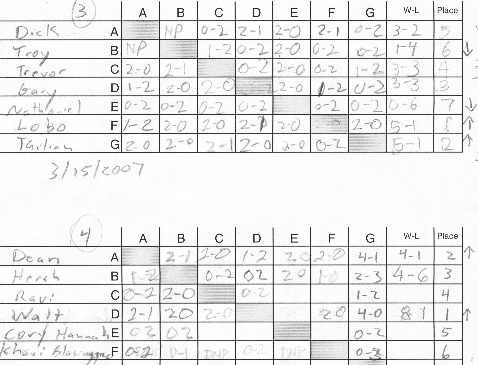 3 A B C D E F G W-L Place
Dick A NP 0-2 2-1 2-0 2-1 0-2 3-2 5
Troy B NP 1-2 0-2 2-0 0-2 0-2 1-4 6 ↓
Trevor C 2-0 2-1 0-2 2-0 0-2 1-2 3-3 4
Gary D 1-2 2-0 2-0 2-0 1-2 0-2 3-3 3
Nathaniel E 0-2 0-2 0-2 0-2 0-2 0-2 0-6 7 ↓
Lobo F 1-2 2-0 2-0 2-1 2-0 2-0 5-1 1 ↑
G 2-0 2-0 2-1 2-0 2-0 0-2 5-1 2 ↑
3/15/2007
4 A B C D E F G W-L Place
Dean A 2-1 2-0 1-2 20 2-0 4-1 4-1 2 ↑
Hersh B 1-2 0-2 02 20 1-0 2-3 4-6 3
Ravi C 0-2 2-0 0-2 1-2 4
Walt D 2-1 20 2-0 20 4-0 8-1 1 ↑
Cory Hannah E 02 02 0-2 5
Khavi F 0-2 0-1 DNP 0-2 DNP 6